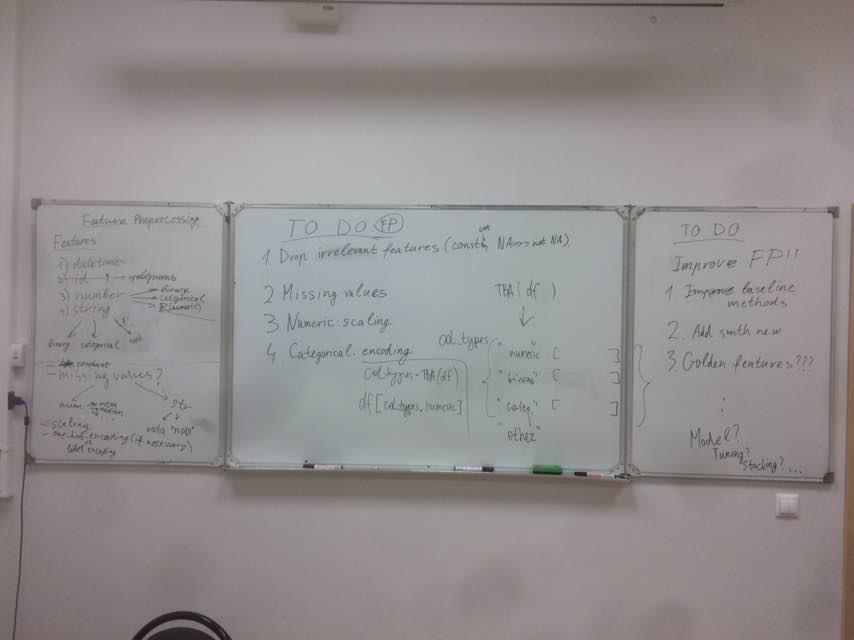 Feature Preprocessing
Features
1) datetime
2) id
3) number
binary
categorical
R (numeric)
4) string
binary categorical
constant
- missing values?
num
str
- scaling
- one-hot-encoding (if necessary)
or
label encoding
TO DO FP
1 Drop irrelevant features (const, NA>>> not NA)
2 Missing values
3 Numeric: scaling
4. Categorical: encoding
col_types = TBA(df)
df[col_types.numeric]
TBA(df)
col_types
"numeric" [ ]
"binary" [ ]
"categ." [ ]
"other"
TO DO
Improve FP!!
1 Improve baseline
methods
2. Add smth new
3. Golden features???
Model?
Tuning?
Stacking? ...